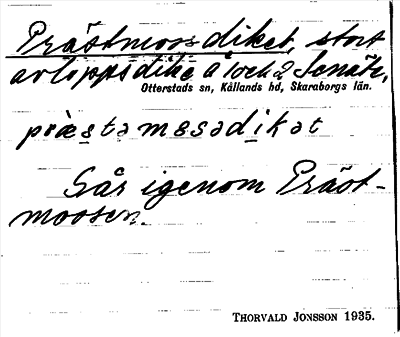 Prästmossdiket, stort
avloppsdike å 1 och 2 Senäte,
Otterstads sn, Kållands hd, Skaraborgs län.
præ̀stəmɵsədikət
Går igenom Präst-
mossen.
THORVALD JONSSON 1935.